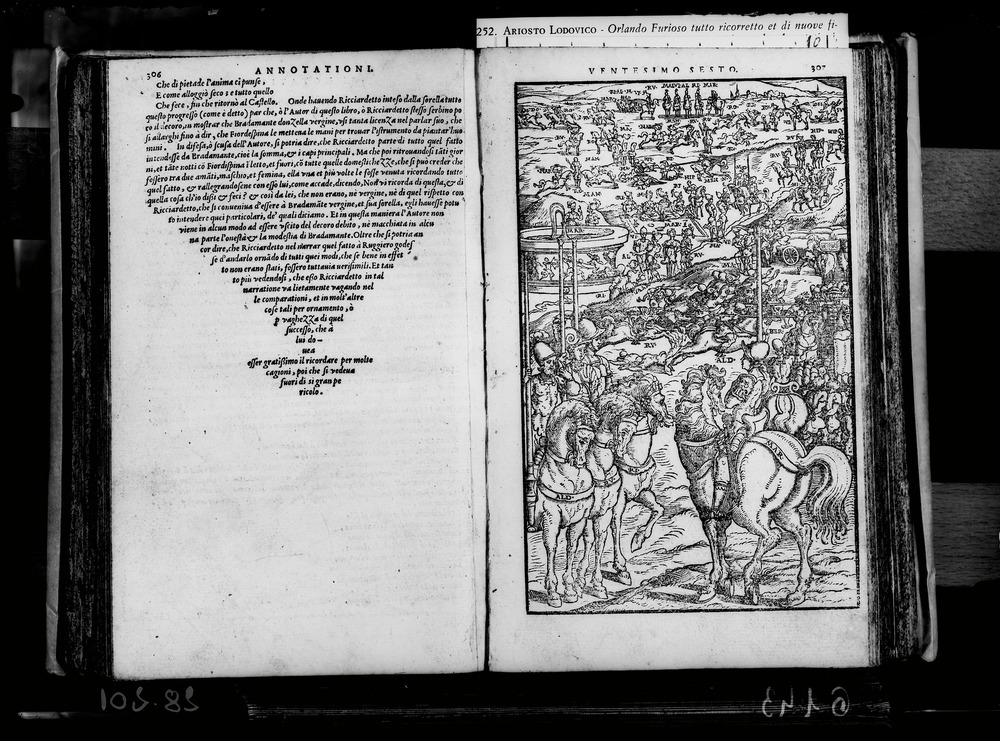 252. ARIOSTO LODOVICO - Orlando Furioso tutto ricorretto et di nuove fi-
101
306
ANNOTATIONI.
Che di pietade l'anima ci punse,
E come alloggiò seco; e tutto quello
Che fece, fin che ritornò al Castello. Onde hauendo Ricciardetto inteso dalla sorella tutto
questo progresso (come è detto) par che, ò l'Autor di questo libro, ò Ricciardetto stesso serbino po
co il decoro, in mostrar che Bradamante donzella vergine, vsi tanta licenza nel parlar suo, che
si allarghi fino à dir, che Fiordespina le metteua le mani per trouar l'istrumento da piantar huo
mini. In difesa, ò scusa dell'Autore, si potria dire, che Ricciardetto parte di tutto quel fatto
intendesse da Bradamante, cioè la somma, & i capi principali. Ma che poi ritrouandosi tāti gior
ni, et tāte notti cō Fiordispina ī letto, et fuori, cō tutte quelle domestichezze, che si può creder che
fossero tra due amāti, maschio, et femina, ella vna et più volte le fosse venuta ricordando tutto
quel fatto, & rallegrandosene con esso lui, come accade, dicendo, Non vi ricorda di questa, & di
quella cosa ch'io dissi & feci? & così da lei, che non erano, nè vergine, nè di quel rispetto con
Ricciardetto, che si conueniua d'essere à Bradamāte vergine, et sua sorella, egli hauesse potu
to intendere quei particolari, de' quali diciamo. Et in questa maniera l'Autore non
viene in alcun modo ad essere vscito del decoro debito, nè macchiata in alcu
na parte l'onestà & la modestia di Bradamante. Oltre che si potria an
cor dire, che Ricciardetto nel narrar quel fatto à Ruggiero godes
se d'andarlo ornādo di tutti quei modi, che se bene in effet
to non erano stati, fossero tuttauia verisimili. Et tan
to più vedendosi, che esso Ricciardetto in tal
narratione va lietamente vagando nel
le comparationi, et in molt'altre
cose tali per ornamento, ò
p vaghezza di quel
successo, che à
lui do-
uea
esser gratissimo il ricordare per molte
cagioni, poi che si vedeua
fuori di si gran pe
ricolo.
VENTESIMO SESTO.
307
MAR
ALD
ALD
MAR
28.201
6143